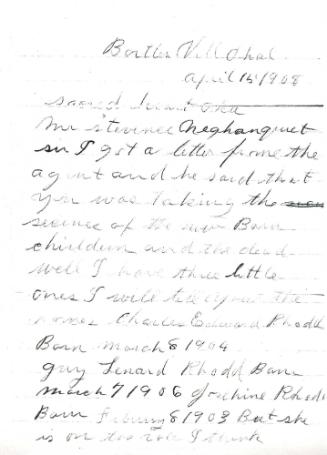 Bartles Vill Okal
april 15 1908
sacred heart Oka
Mr stevence Neghanquet
sir I got a letter from the
agent and he said that
you was taking the
secince of the new Born
chirldern and the dead
well I have three little
ones I will tell you the
names Charles Edward Rhodd
Born march 8 1904
guy Lenard Rhodd Born
march 7 1906 Rhodd
Born 8 1903 But she
is on the role I think